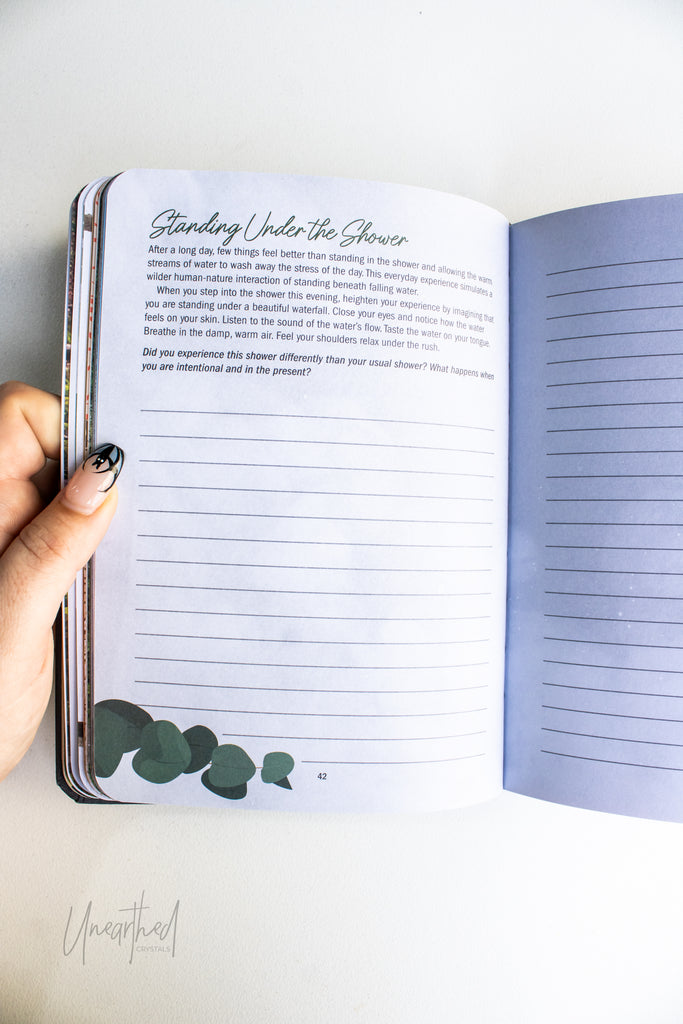 Standing Under the Shower
After a long day, few things feel better than standing in the shower and allowing the warm
streams of water to wash away the stress of the day. This everyday experience simulates a
wilder human-nature interaction of standing beneath falling water.
When you step into the shower this evening, heighten your experience by imagining that
you are standing under a beautiful waterfall. Close your eyes and notice how the water
feels on your skin. Listen to the sound of the water's flow. Taste the water on your tongue.
Breathe in the damp, warm air. Feel your shoulders relax under the rush.
Did you experience this shower differently than your usual shower? What happens when
you are intentional and in the present?
42
Unearthed
CRYSTALS